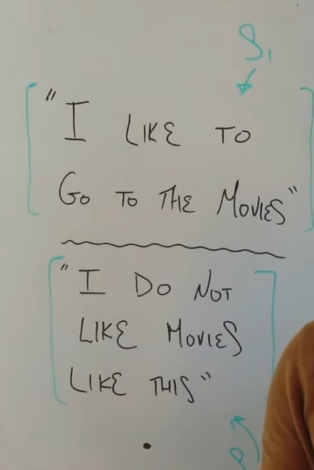 S1
"I LIKE TO
GO TO THE MOVIES"
"I DO NOT
LIKE MOVIES
LIKE THIS"